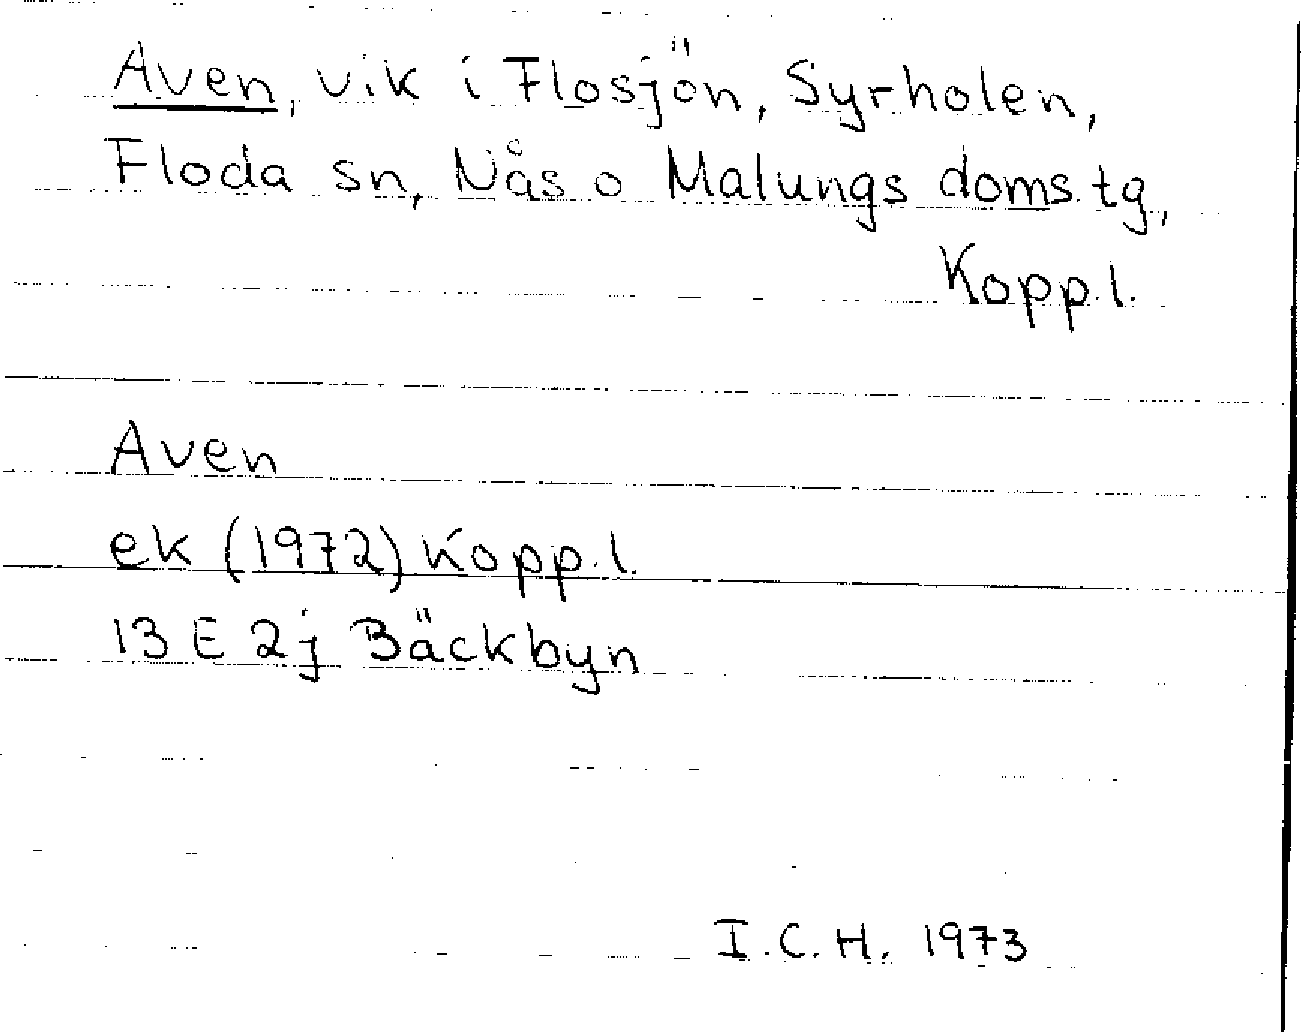 Aven, vik i Flosjön, Syrholen,
Floda sn, Nås o Malungs doms.tg,
Kopp.l.
Aven
ek (1972) Kopp.l.
13 E 2j Bäckbyn
I.C.H. 1973